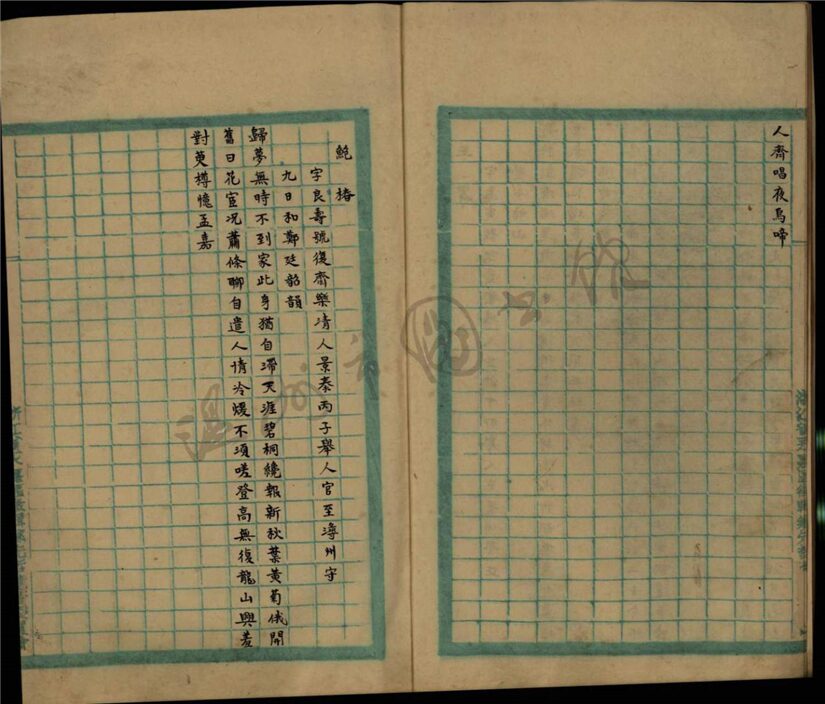 人齊唱夜烏啼
鮑椿
字良壽號復齋樂清人景泰丙子舉人官至潯州守
九日和鄭廷韶韻
歸夢無時不到家此身猶自滯天涯碧桐纔報新秋葉黃菊俄開
舊日花宦況蕭條聊自遣人情冷煖不須嗟登高無復龍山興羞
對萸樽憶孟嘉